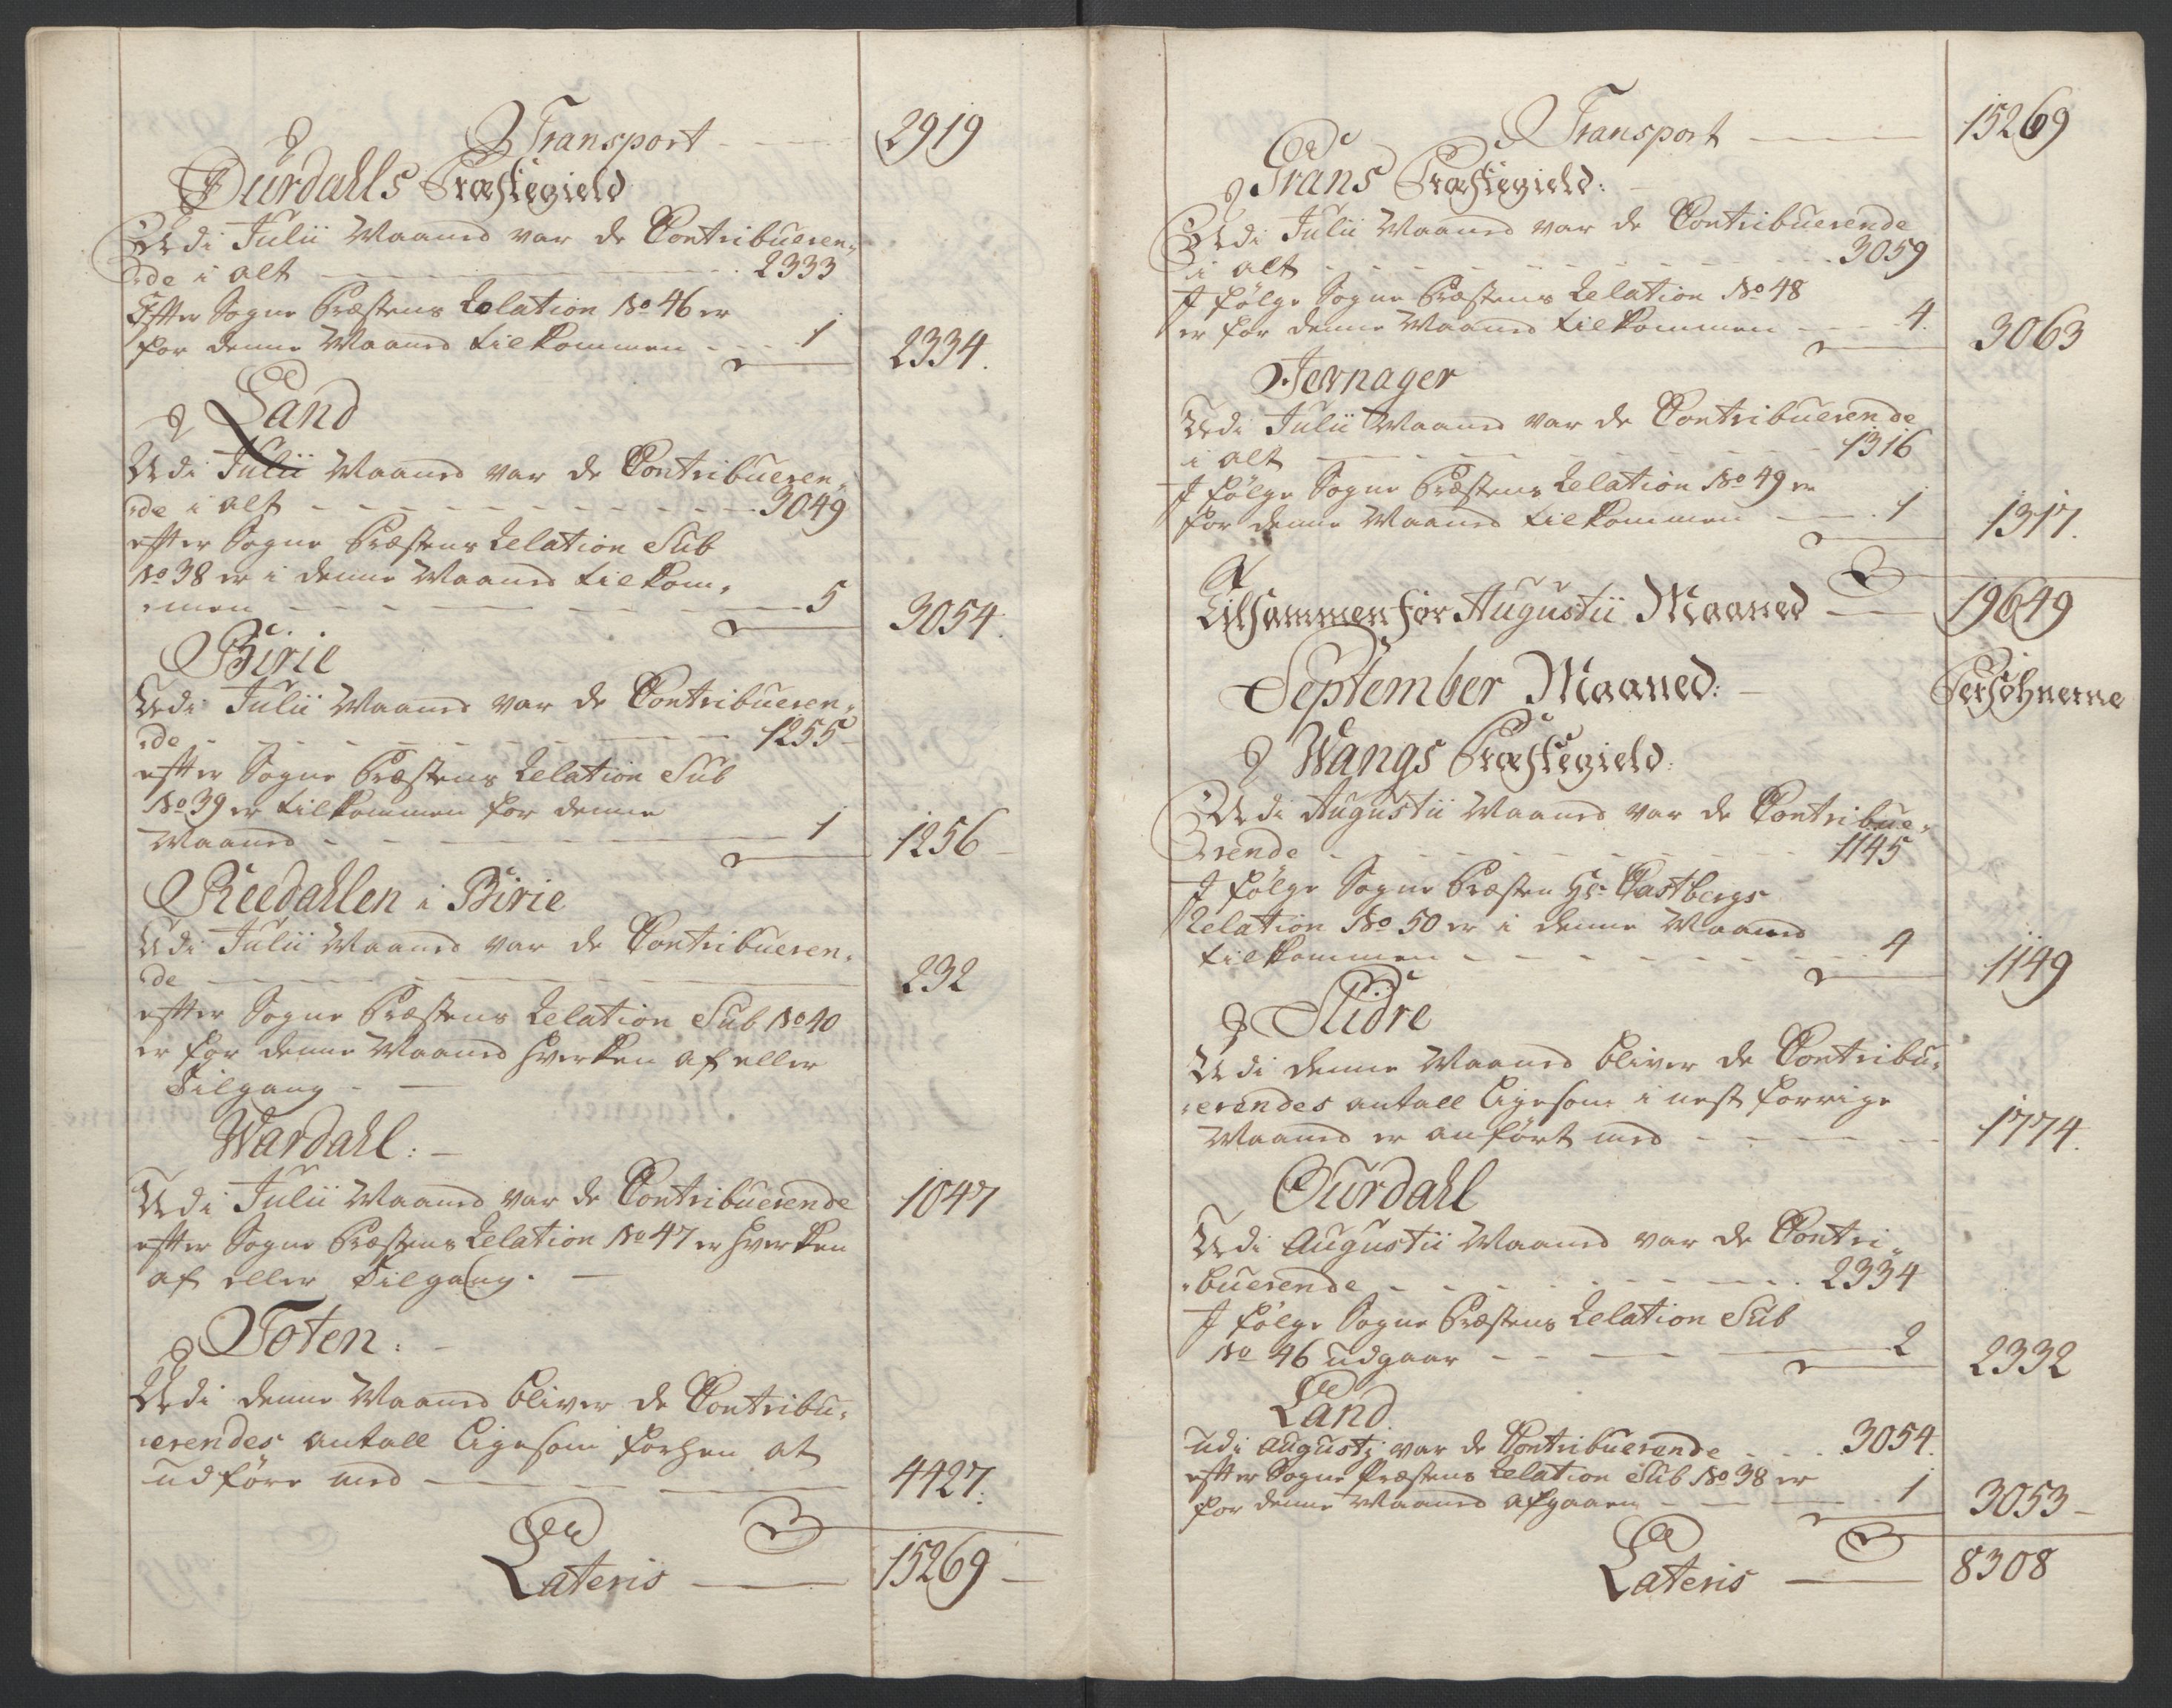 Transport - - - 2919
Ourdahls Præstegield
Udi Julii Maaned var de Contribueren-
de i alt - - - 2333
Efter Sogne Præstens Relation No 46 er
for denne Maaned tilkommen - - 1 2334.
Land
Udi Julii Maaned var de Contribueren-
de i alt - - - 3049
efter Sogne Præstens Relation Sub
No 38 er i denne Maaned tilkom-
men - - - 5 3054.
Birie
Udi Julii Maaned var de Contribueren-
de - - - 1255
efter Sogne Præstens Relation Sub
No 39 er tilkommen for denne
Maaned - - - 1 1256
Reedahlen i Birie
Udi Julii Maaned var de Contribueren-
de - - - 232
efter Sogne Præstens Relation Sub No 40
er for denne Maaned hverken af eller
Tilgang - -
Wardahl: -
Udi Julii Maaned var de Contribuerende 1047
efter Sogne Præstens Relation No 47 er hverken
af eller Tilgang. -
Toten: -
Udi denne Maaned bliver de Contribu-
erendes antall ligesom forhen at
udføre med - - - 4427.
Lateris - 15269 -
Transport - - 15269
Grans Præstegield:
Udi Julii Maaned var de Contribuerende
i alt - - - 3059
I følge Sogne Præstens Relation No 48
er for denne Maaned tilkommen - - 4. 3063
Jevnager
Udi Julii Maaned var de Contribuerende
i alt - - - 1316
I følge Sogne Præstens Relation No 49 er
for denne Maaned tilkommen - - 1 1317.
Tilsammen for Augustii Maaned - 19649
September Maaned: - Persohnerne
Wangs Præstegield:
Udi Augustii Maaned var de Contribue-
rende - - - 1145
I følge Sogne Præsten Hr. Castbergs
Relation No 50 er i denne Maaned
tilkommen - - - 4 1149
Slidre
Udi denne Maaned bliver de Contribu-
erendes antall ligesom i nest forrige
Maaned er anført med - - - 1774.
Ourdahl
Udi Augustii Maaned var de Contri-
buerende - - - 2334
I følge Sogne Præstens Relation Sub
No 46 udgaar - - - 2 2332
Land
udi Augustj var de Contribuerende - - 3054.
efter Sogne Præstens Relation Sub No 38 er
for denne Maaned afgaaen - - - 1 3053 -
Lateris - 8308